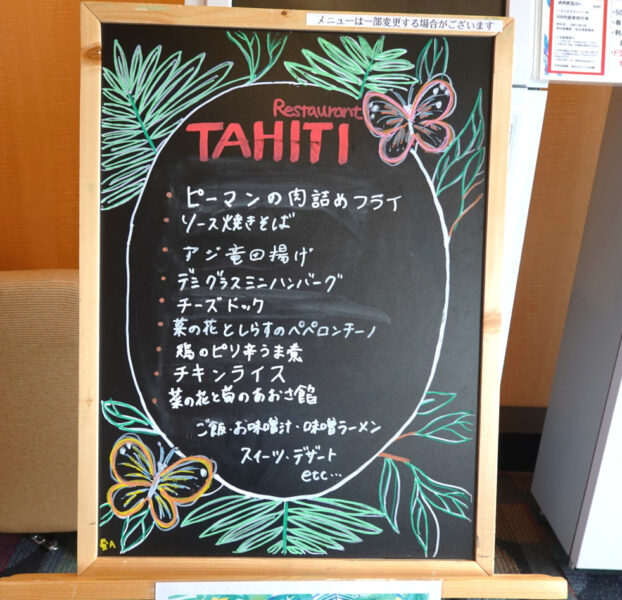 メニューは一部変更する場合がございます
Restaurant
TAHITI
・ピーマンの肉詰めフライ
・ソース焼きそば
・アジ竜田揚げ
・デミグラスミニハンバーグ
・チーズドック
・菜の花としらすのペペロンチーノ
・鶏のピリ辛うま煮
・チキンライス
・菜の花と筍のあおさ餡
ご飯・お味噌汁・味噌ラーメン
スイーツ・デザート
etc…